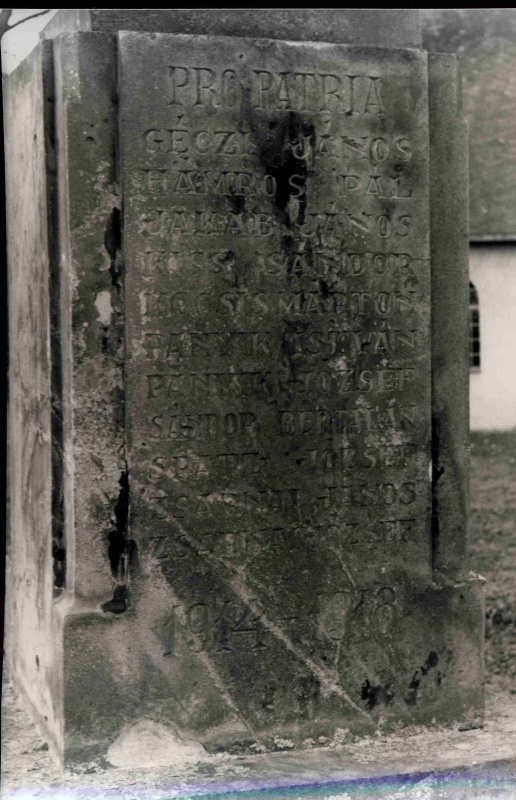 PRO PATRIA
GÉCZI JÁNOS
HÁMROS PÁL
JAKAB JÁNOS
KISS SÁNDOR
KOCSIS MÁRTON
PANYIK ISTVÁN
PANYIK JÓZSEF
SÁNDOR BERTALAN
SPATZ JÓZSEF
JÁNOS
JÓZSEF
1914-1918